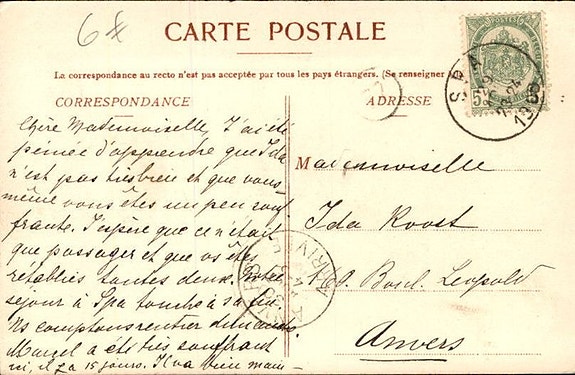 6
CARTE POSTALE
La correspondance au recto n'est pas acceptée par tous les pays étrangers. (Se renseigner
CORRESPONDANCE
ADRESSE
SPA
1906
Chère Mademoiselle, J'ai été
peinée d'apprendre que Ida
n'est pas très bien et que vous-
même vous êtes un peu souf
frante. J'espère que ce n'était
que passager et que vs êtes
rétablies toutes deux. Notre
séjour à Spa touche à sa fin
Ns comptons rentrer dimanche
Marcel a été très souffrant
ici, il y a 15 jours. Il va bien main-
Mademoiselle
Ida Roost
Boul. Léopold
Anvers